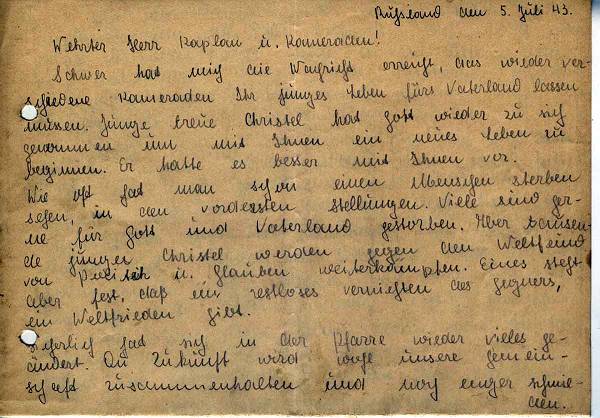 Rußland den 5. Juli 43.
Wehrter Herr Kaplan u. Kameraden!
Schwer hat mich die Nachricht erreicht, das wieder ver-
schiedene Kameraden Ihr junges Leben fürs Vaterland lassen
müssen. Junge treue Christen hat Gott wieder zu sich
genommen um mit Ihnen ein neues Leben zu
beginnen. Er hatte es besser mit Ihnen vor.
Wie oft hat man schon einen Menschen sterben
sehen, in den vordersten Stellungen. Viele sind ger-
ne für Gott und Vaterland gestorben. Aber tausen-
de junger Christen werden gegen den Weltfeind
von u. Glauben weiterkämpfen. Eines steht
aber fest, daß ein restloses vernichten des gegners,
ein Weltfrieden gibt.
Sicherlich hat sich in der Pfarre wieder vieles ge-
ändert. In Zukunft wird unsere gemein-
schaft zusammenhalten und noch enger schmie-
den.